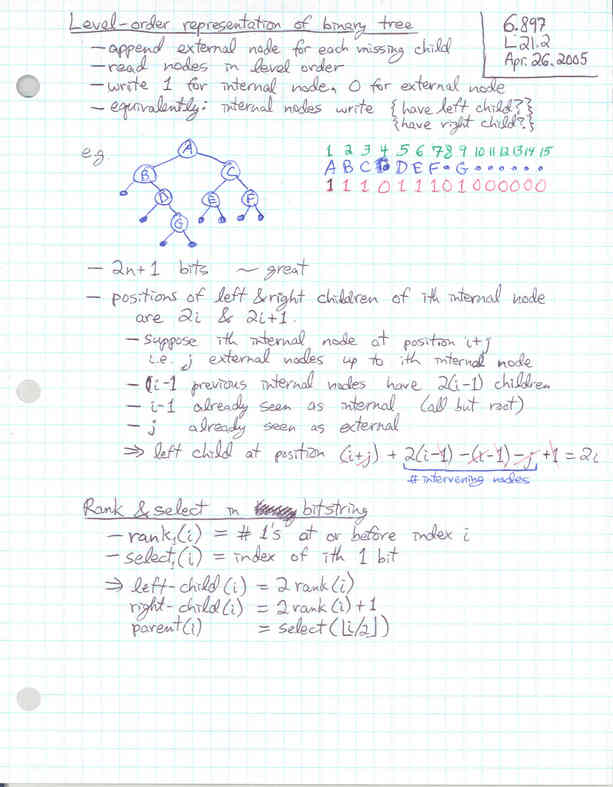 Level-order representation of binary tree
6.897
L21.2
Apr. 26, 2005
- append external node for each missing child
- read nodes in level order
- write 1 for internal node, 0 for external node
- equivalently: internal nodes write {have left child?}
{have right child?}
e.g.
A
B
C
D
E
F
G
1 2 3 4 5 6 7 8 9 10 11 12 13 14 15
A B C • D E F • G • • • • • •
1 1 1 0 1 1 1 0 1 0 0 0 0 0 0
- 2n+1 bits ~ great
- positions of left & right children of ith internal node
are 2i & 2i+1.
- suppose ith internal node at position i+j
i.e. j external nodes up to ith internal node
- i-1 previous internal nodes have 2(i-1) children
- i-1 already seen as internal (all but root)
- j already seen as external
⇒ left child at position (i+j) + 2(i-1) - (i-1) - j + 1 = 2i
# intervening nodes
Rank & select in bitstring
- rank₁(i) = # 1's at or before index i
- select₁(i) = index of ith 1 bit
⇒ left-child(i) = 2 rank(i)
right-child(i) = 2 rank(i) + 1
parent(i) = select(⌊i/2⌋)